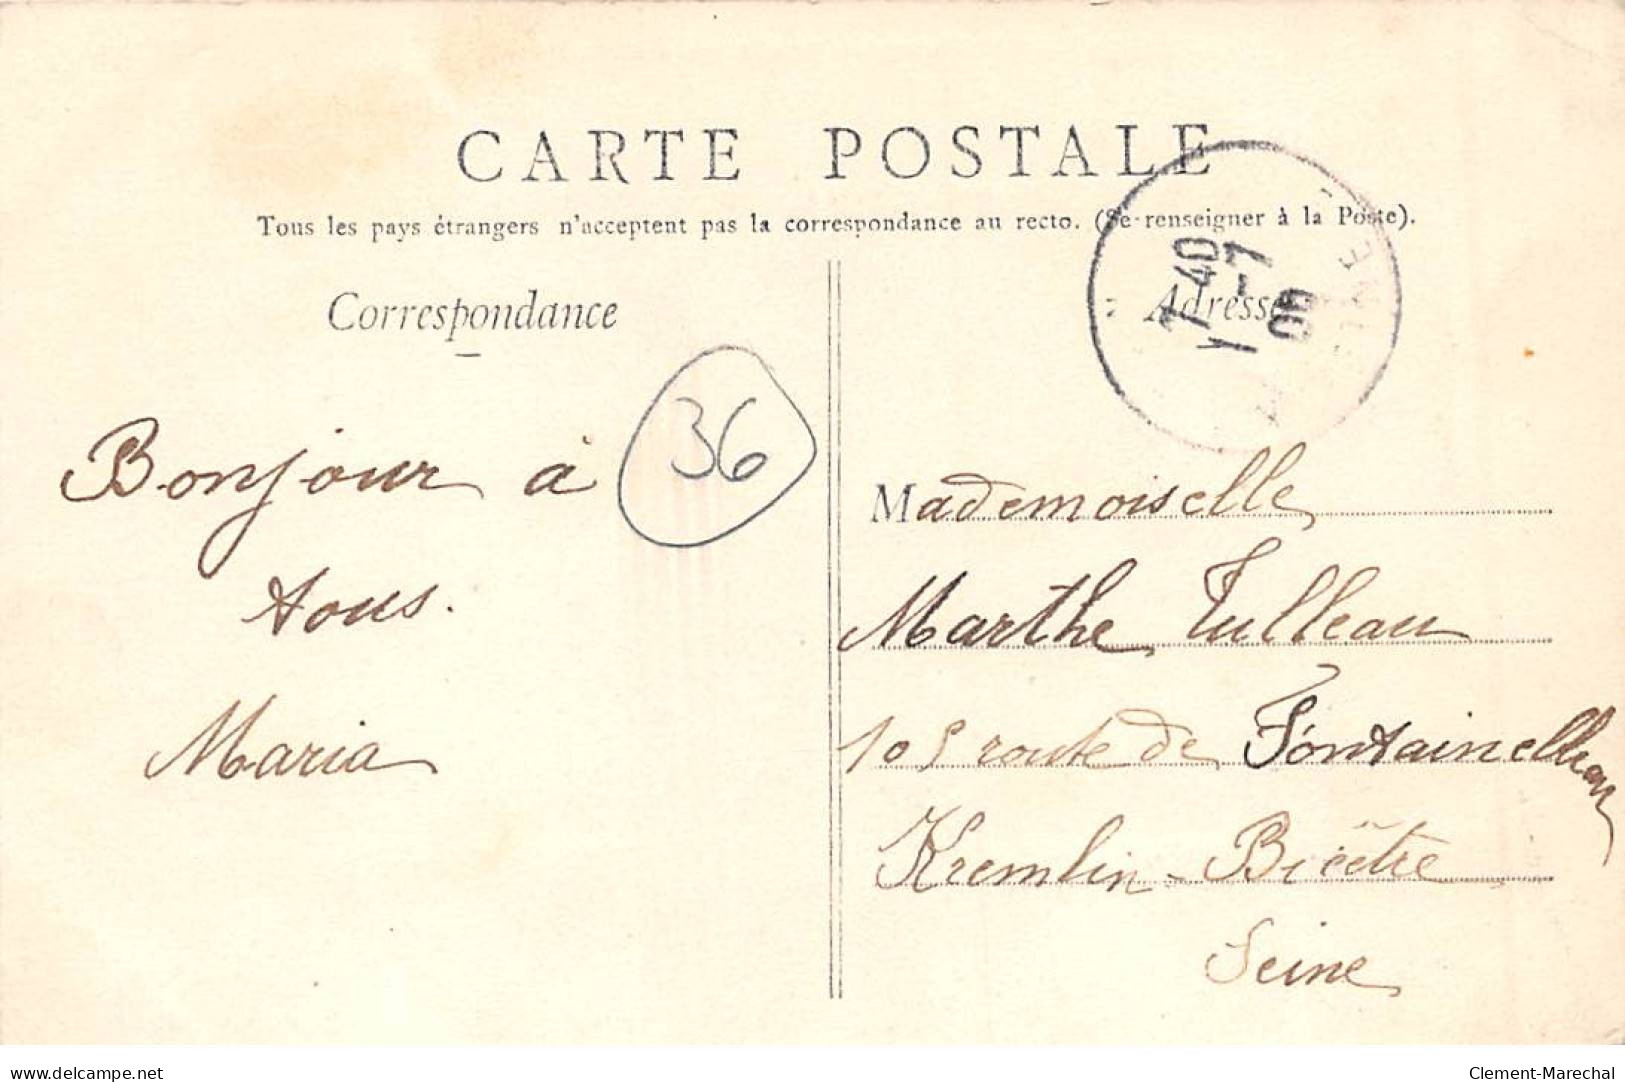 CARTE POSTALE
Tous les pays étrangers n'acceptent pas la correspondance au recto. (Se renseigner à la Poste).
Correspondance
Adresse
7 40
7
Bonjour à
tous.
Maria
36
Mademoiselle
Marthe Tulleau
105 route de Fontainebleau
Kremlin-Bicêtre
Seine
delcampe.net
Clement-Marechal